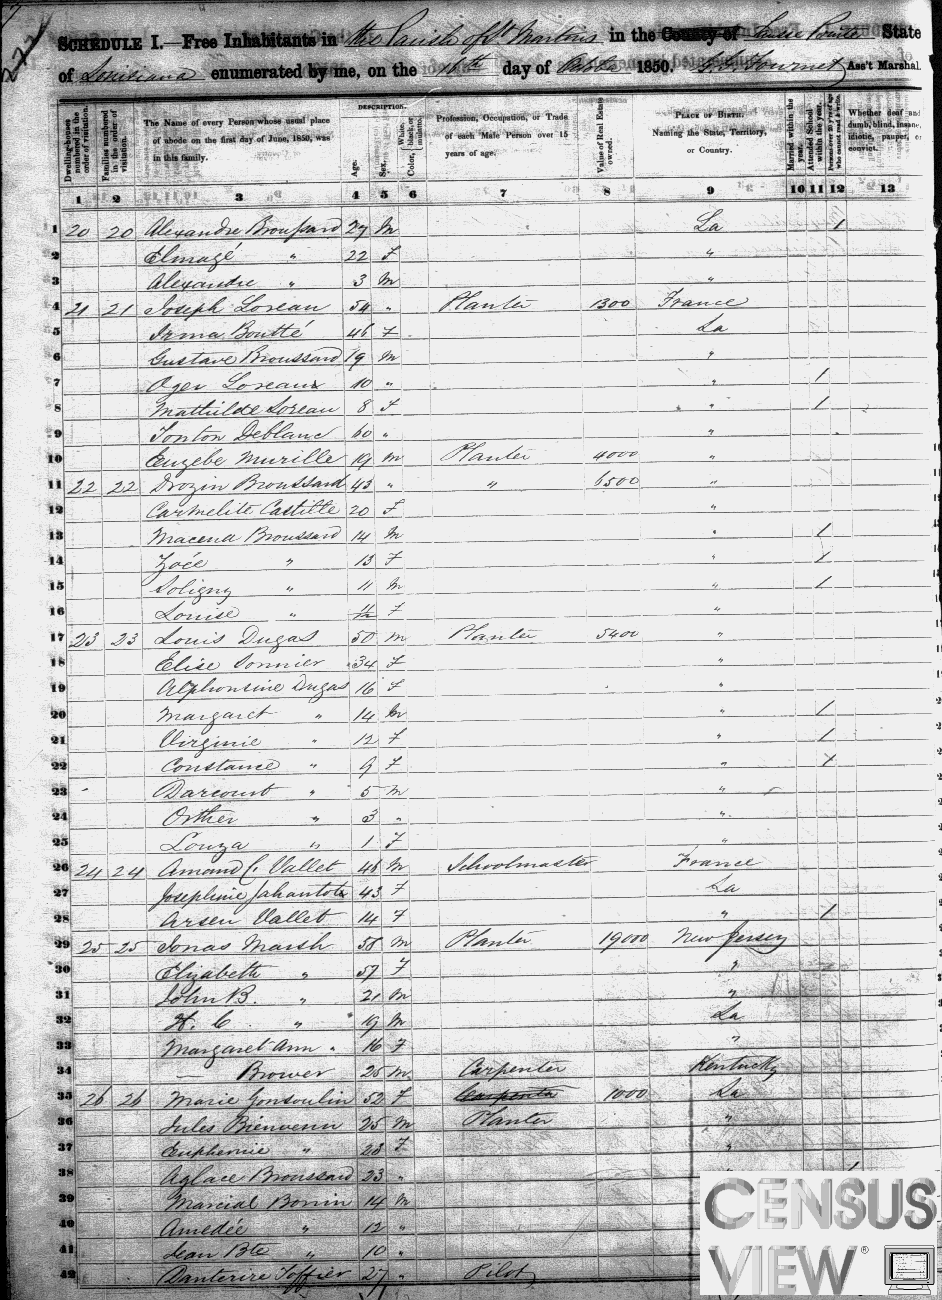 SCHEDULE I.—Free Inhabitants in the Parish of St Martins in the County of State
of Louisiana enumerated by me, on the 16th day of 1850. Ass't Marshal.
Dwelling-houses numbered in the order of visitation.
Families numbered in the order of visitation.
The Name of every Person whose usual place of abode on the first day of June, 1850, was in this family.
DESCRIPTION.
Age.
Sex.
Color, White, black, or mulatto.
Profession, Occupation, or Trade of each Male Person over 15 years of age.
Value of Real Estate owned.
PLACE OF BIRTH. Naming the State, Territory, or Country.
Married within the year.
Attended School within the year.
Persons over 20 y'rs of age who cannot read & write.
Whether deaf and dumb, blind, insane, idiotic, pauper, or convict.
1 2 3 4 5 6 7 8 9 10 11 12 13
1 20 20 Alexandre Broussard 27 M La 1
2 Elmazé " 22 F "
3 Alexandre " 3 M "
4 21 21 Joseph Loreau 54 " Planter 1300 France
5 Irma Boutté 46 F La
6 Gustave Broussard 19 M "
7 Oger Loreaux 10 " " 1
8 Mathilde Loreau 8 F " 1
9 Tonton Deblanc 60 " "
10 Euzebe Murille 19 M Planter 4000 "
11 22 22 Drozin Broussard 43 " " 6500 "
12 Carmelite Castille 20 F "
13 Macena Broussard 14 M " 1
14 Zoée " 13 F " 1
15 Soligny " 11 M " 1
16 Louise " F "
17 23 23 Louis Dugas 50 M Planter 5400 "
18 Elise Sonnier 34 F "
19 Alphonsine Dugas 16 F "
20 Margaret " 14 M " 1
21 Virginie " 12 F " 1
22 Constance " 9 F " 1
23 Darcourt " 5 M "
24 Orther " 3 " "
25 Louza " 1 F "
26 24 24 Amand C. Vallet 46 M Schoolmaster France
27 Josephine 43 F La
28 Arsen Vallet 14 F " 1
29 25 25 Jonas Marsh 58 M Planter 19000 New Jersey
30 Elizabeth " 57 F "
31 John B. " 21 M "
32 H. C. " 19 M La
33 Margaret Ann " 16 F "
34 Brower 25 M Carpenter Kentucky
35 26 26 Marie Gonsoulin 52 F Carpenter 1000 La
36 Jules Bienvenu 25 M Planter "
37 Euphemie " 28 F "
38 Aglace Broussard 23 " 1
39 Marcial Bonin 14 M
40 Amedée " 12 "
41 Jean Bte " 10 "
42 Danterive Toffier 27 " Pilot
CENSUS
VIEW®